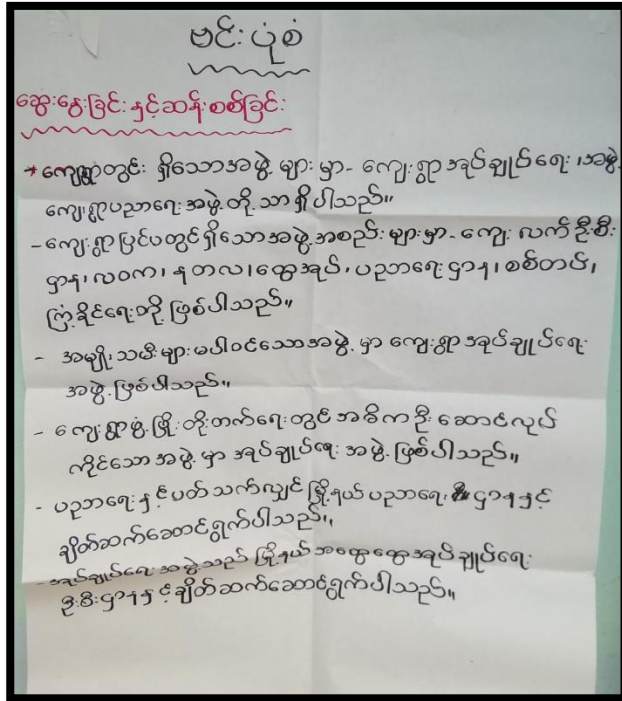 ဗင်းပုံစံ
ဆွေးနွေးခြင်းနှင့်ဆန်းစစ်ခြင်း
* ကျေးရွာတွင်း ရှိသောအဖွဲ့များမှာ - ကျေးရွာအုပ်ချုပ်ရေးအဖွဲ့၊
ကျေးရွာပညာရေးအဖွဲ့တို့သာရှိပါသည်။
- ကျေးရွာပြင်ပတွင်ရှိသောအဖွဲ့အစည်းများမှာ - ကျေးလက်ဦးစီး
ဌာန၊ လဝက၊ နတလ၊ ထွေအုပ်၊ ပညာရေးဌာန၊ စစ်တပ်၊
ကြံ့ခိုင်ရေးတို့ဖြစ်ပါသည်။
- အမျိုးသမီးများမပါဝင်သောအဖွဲ့မှာ ကျေးရွာအုပ်ချုပ်ရေး
အဖွဲ့ဖြစ်ပါသည်။
- ကျေးရွာဖွံ့ဖြိုးတိုးတက်ရေးတွင်အဓိကဦးဆောင်လုပ်
ကိုင်သောအဖွဲ့မှာ အုပ်ချုပ်ရေးအဖွဲ့ဖြစ်ပါသည်။
- ပညာရေးနှင့်ပတ်သက်လျှင်မြို့နယ်ပညာရေးဌာနနှင့်
ချိတ်ဆက်ဆောင်ရွက်ပါသည်။
- အုပ်ချုပ်ရေးအဖွဲ့သည် မြို့နယ်အထွေထွေအုပ်ချုပ်ရေး
ဦးစီးဌာနနှင့်ချိတ်ဆက်ဆောင်ရွက်ပါသည်။